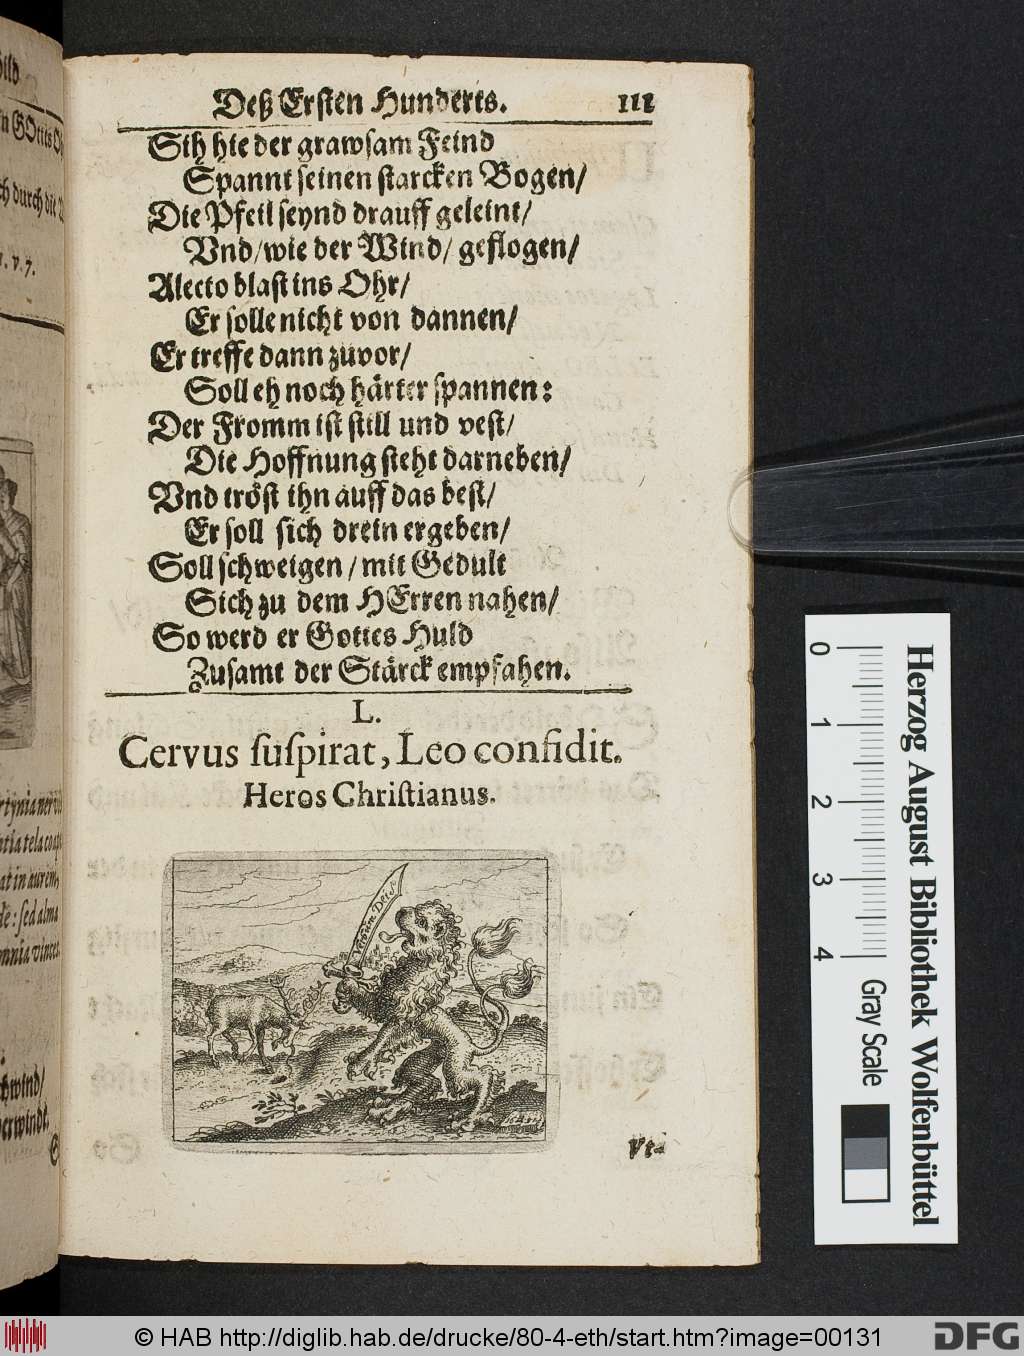 Deß Ersten Hunderts. 111
Sih hie der grawsam Feind
Spannt seinen starcken Bogen/
Die Pfeil seynd drauff geleint/
Vnd/ wie der Wind/ geflogen/
Alecto blast ins Ohr/
Er solle nicht von dannen/
Er treffe dann zuvor/
Soll eh noch härter spannen:
Der Fromm ist still und vest/
Die Hoffnung steht darneben/
Vnd tröst ihn auff das best/
Er soll sich drein ergeben/
Soll schweigen / mit Gedult
Sich zu dem HErren nahen/
So werd er Gottes Huld
Zusamt der Stärck empfahen.
L.
Cervus suspirat, Leo confidit.
Heros Christianus.
Vt-
ild
n GOttes
ch durch die
v. 7.
at in aurem,
de: sed alma
omnia vincet.
wind/
0 1 2 3 4
Gray Scale
Herzog August Bibliothek Wolfenbüttel
© HAB http://diglib.hab.de/drucke/80-4-eth/start.htm?image=00131
DFG